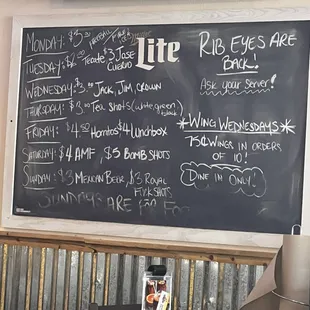 MONDAY: $3
TUESDAY: $2 Tecate $3 Jose Cuervo
WEDNESDAY: $3 Jack, Jim, Crown
THURSDAY: $3 Tea Shots (white, green, black)
FRIDAY: $4.50 Hornitos $4 Lunchbox
SATURDAY: $4 AMF, $5 BOMB SHOTS
SUNDAY: $3 MEXICAN BEER, $3 ROYAL
SHOTS
SUNDAYS ARE
Lite
RIB EYES ARE
BACK!
Ask your Server!
*WING WEDNESDAYS*
75¢ WINGS IN ORDERS
OF 10!
DINE IN ONLY!